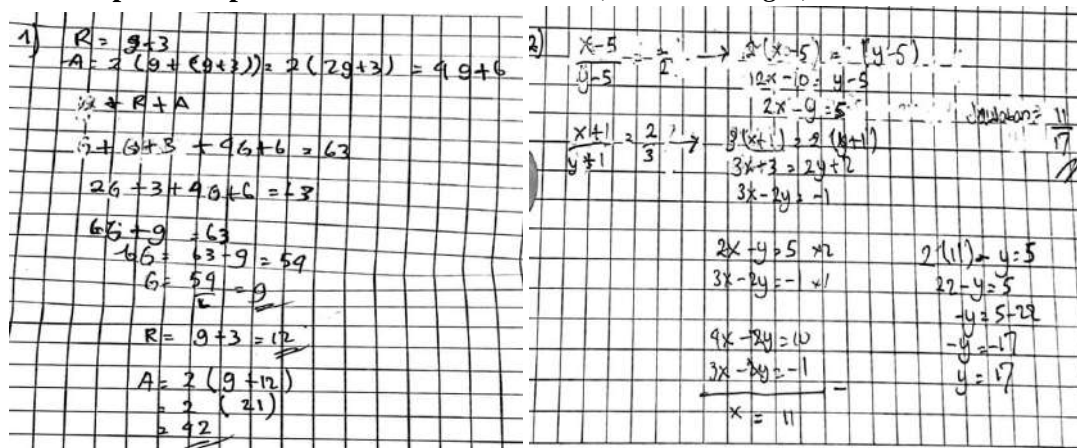 1)
R = g+3
A = 2 (g + (g+3)) = 2 (2g+3) = 4g+6
+ R + A
G + G+3 + 4G+6 = 63
2G + 3 + 4G+6 = 63
6G + 9 = 63
6G = 63-9 = 54
G = 54/6 = 9
R = 9+3 = 12
A = 2 (9+12)
= 2 (21)
= 42
2)
x-5/y-5 = 1/2 → 2(x-5) = (y-5)
2x-10 = y-5
2x-y = 5
Jawaban = 11/17
x+1/y+1 = 2/3 → 3(x+1) = 2(y+1)
3x+3 = 2y+2
3x-2y = -1
2x-y = 5 ×2
3x-2y = -1 ×1
4x-2y = 10
3x-2y = -1
x = 11
2(11) - y = 5
22-y = 5
-y = 5-22
-y = -17
y = 17